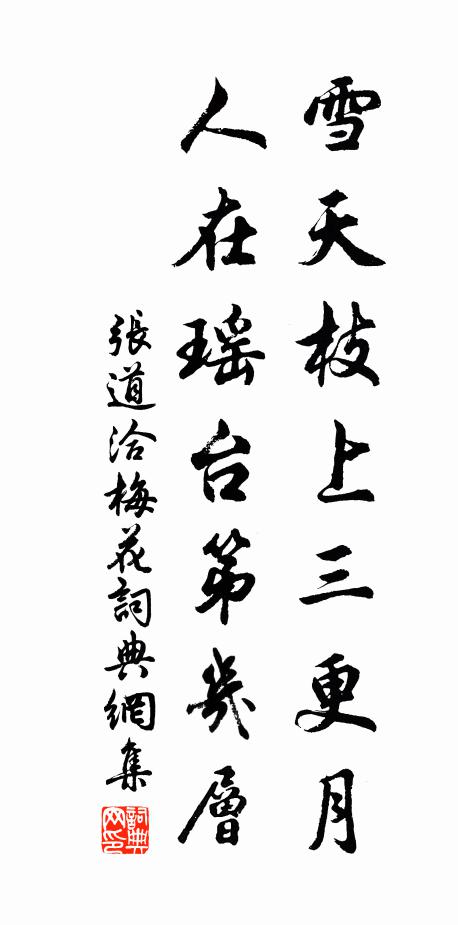 雪天枝上三更月
人在瑶台第幾層
張道洽梅花詞典網集
詞典网印